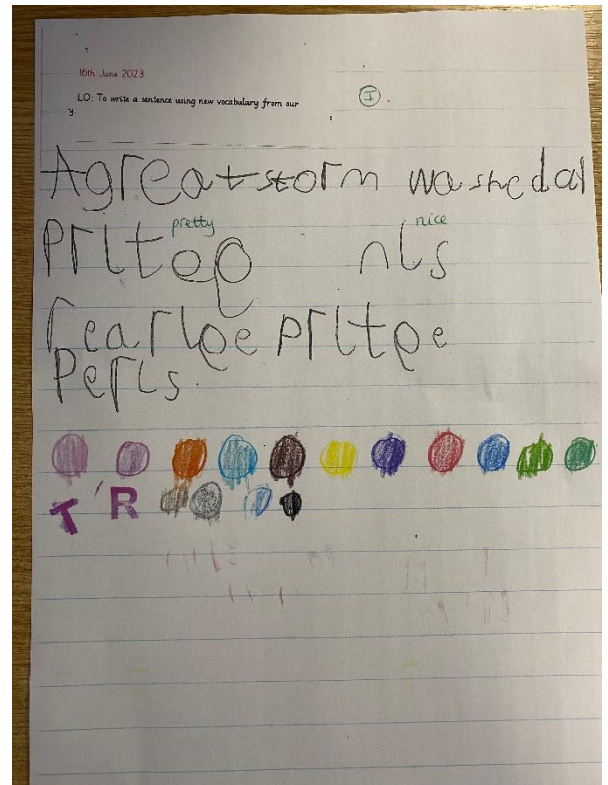 16th June 2023
LO: To write a sentence using new vocabulary from our
y.
I
A great storm washed al
pretty nice
Pritee nis
rearlee pritee
Peris.
T R